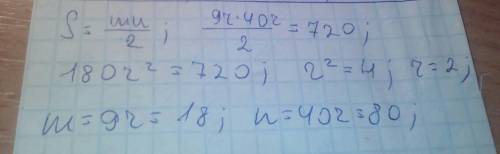 S = mn/2; 9r·40r/2 = 720;
180r² = 720; r² = 4; r = 2;
m = 9r = 18; n = 40r = 80;